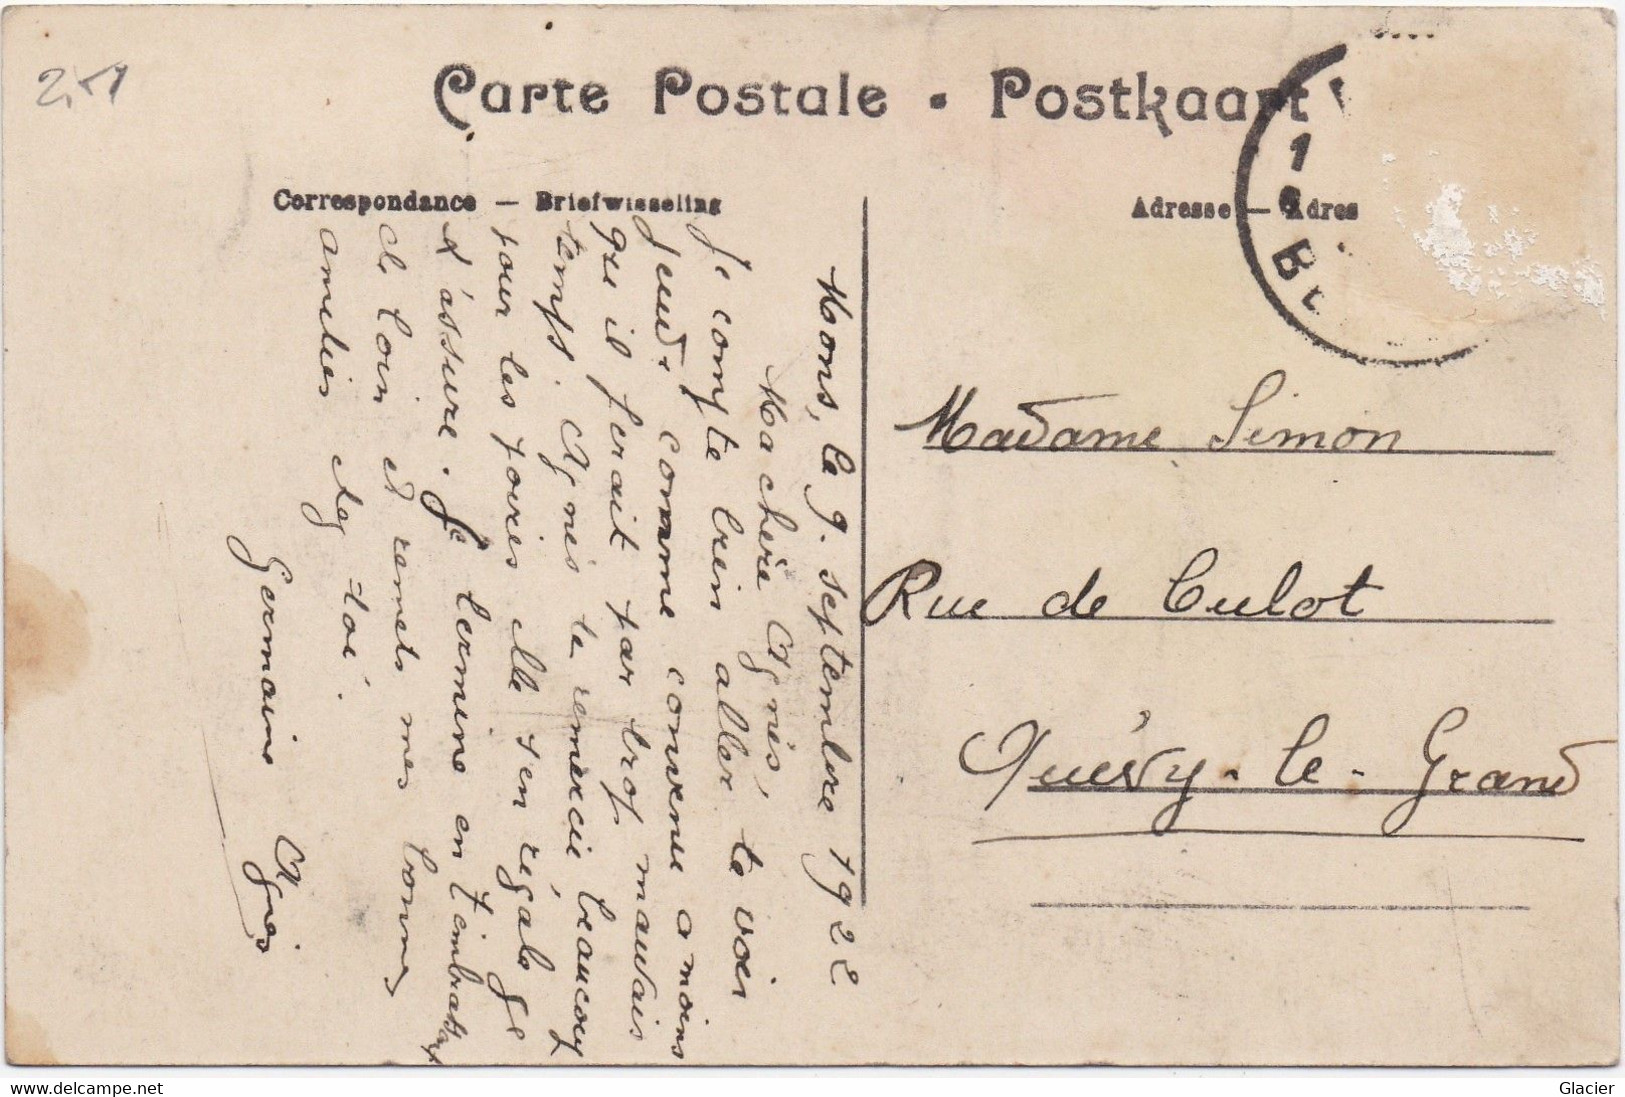 251
Carte Postale • Postkaart
Correspondance — Briefwisseling
Adresse — Adres
1
B
Mons, le 9. septembre 1922
Ma chère Agnès,
Je compte bien aller te voir
jeudi comme convenu a moins
que il ferait par trop mauvais
temps. Agnès te remercie beaucoup
pour les poires elle s'en régale je
t'assure. Je termine en t'embrassant
de loin et remets mes bonnes
amitiés chez toi.
Germaine Agnès
Madame Simon
Rue de Culot
Quévy-le-Grand
https://www.delcampe.net
Glacier